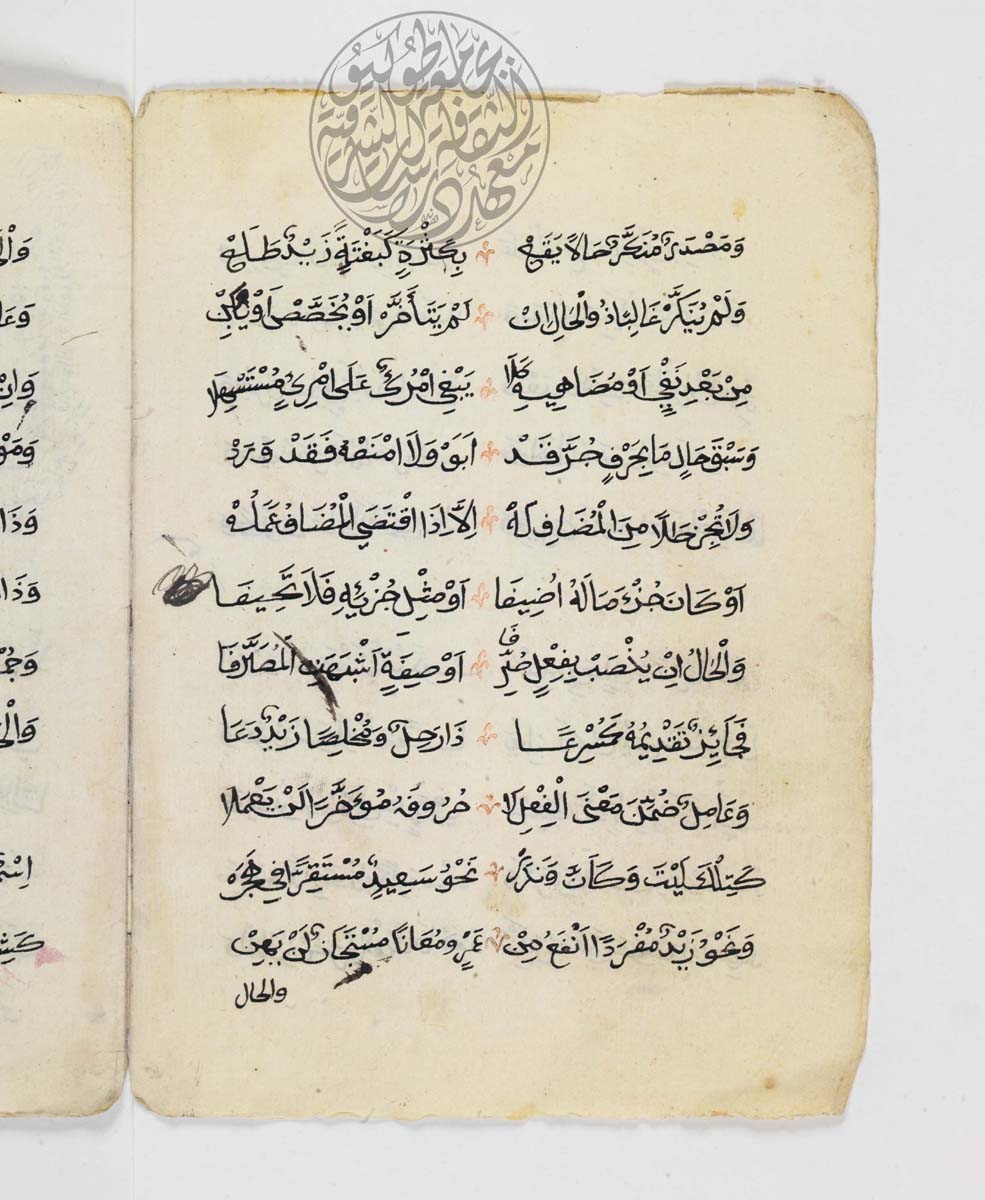 جامعة طوكيو
معهد دراسات الثقافة الشرقية
وَمَصْدَرٌ مُنَكَّرٌ حَالًا يَقَعْ بِكَثْرَةٍ كَبَغْتَةً زَيْدٌ طَلَعْ
وَلَمْ يُنَكَّرْ غَالِبًا ذُو الْحَالِ اِنْ لَمْ يَتَأَخَّرْ اَوْ يُخَصَّصْ اَوْ يَبِنْ
مِنْ بَعْدِ نَفْيٍ اَوْ مُضَاهِيهِ كَلَا يَبْغِي امْرُؤٌ عَلَى امْرِئٍ مُسْتَسْهِلَا
وَسَبْقَ حَالٍ مَا بِحَرْفٍ جُرَّ قَدْ اَبَوْ وَلَا اَمْنَعُهُ فَقَدْ وَرَدْ
وَلَا تُجِزْ حَالًا مِنَ الْمُضَافِ لَهْ اِلَّا اِذَا اقْتَضَي الْمُضَافُ عَمَلَهْ
اَوْ كَانَ جُزْءَ مَا لَهُ اُضِيفَا اَوْ مِثْلَ جُزْئِهِ فَلَا تَحِيفَا
وَالْحَالُ اِنْ يُنْصَبْ بِفِعْلٍ صُرِّفَا اَوْ صِفَةٍ اَشْبَهَتِ الْمُصَرَّفَا
فَجَائِزٌ تَقْدِيمُهُ كَمُسْرِعَا ذَا رَاحِلٌ وَمُخْلِصًا زَيْدٌ دَعَا
وَعَامِلٌ ضُمِّنَ مَعْنَى الْفِعْلِ لَا حُرُوفَهُ مُوَخَّرًا لَنْ يَعْمَلَا
كَتِلْكَ لَيْتَ وَكَاَنَّ وَنَدَرْ نَحْوُ سَعِيدٌ مُسْتَقِرًّا فِي هَجَرْ
وَنَحْوُ زَيْدٌ مُفْرَدًا اَنْفَعُ مِنْ عَمْرٍو مُعَانًا مُسْتَجَازٌ لَنْ يَهِنْ
والحال